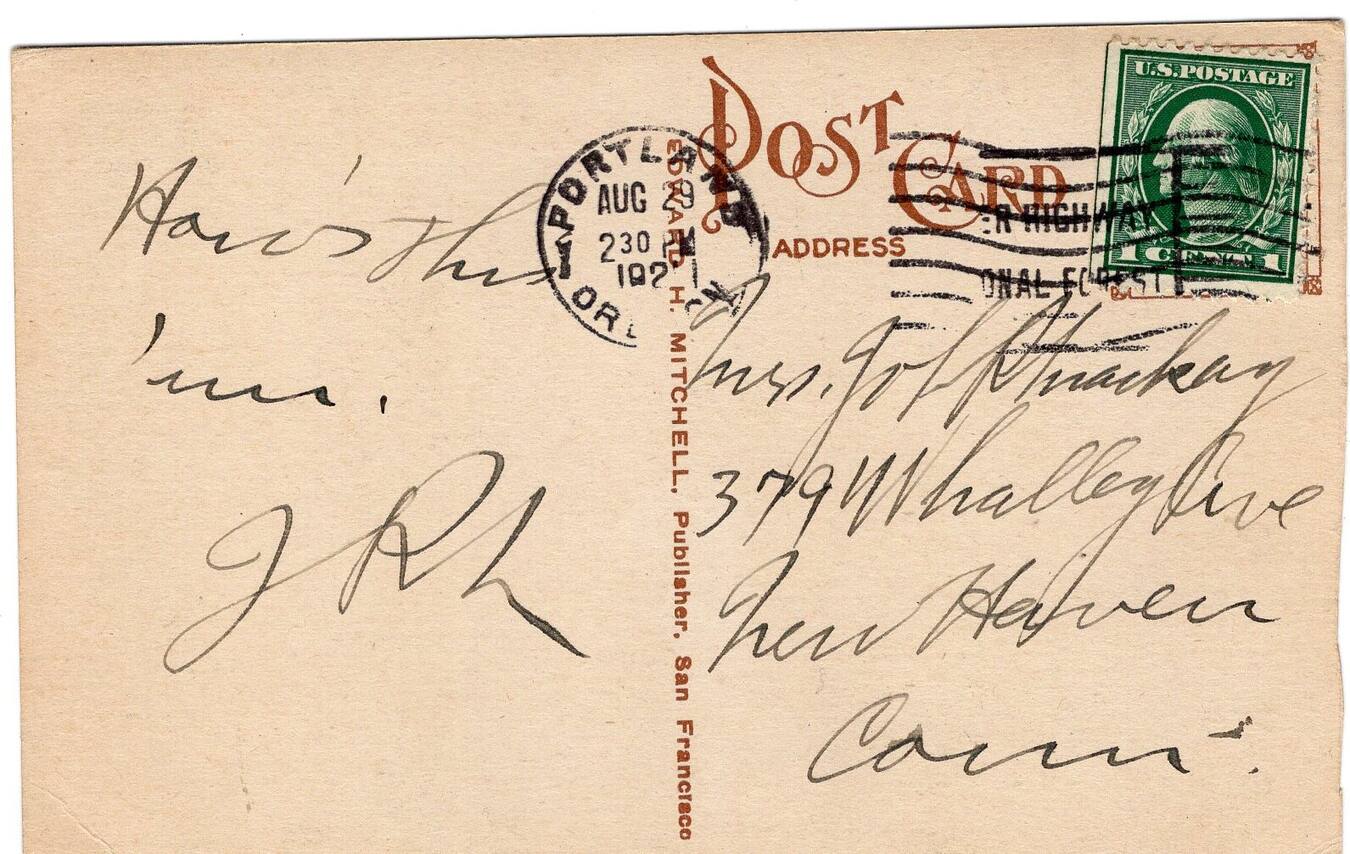 POST CARD
ADDRESS
U.S. POSTAGE
1 CENT 1
PORTLAND
AUG 29
2 30 PM
192
ORE
ER HIGHWAY
ONAL FOREST
How's this
'un.
JRL
EDWARD H. MITCHELL, Publisher, San Francisco
Mrs.
379 Whalley Ave
New Haven
Conn.